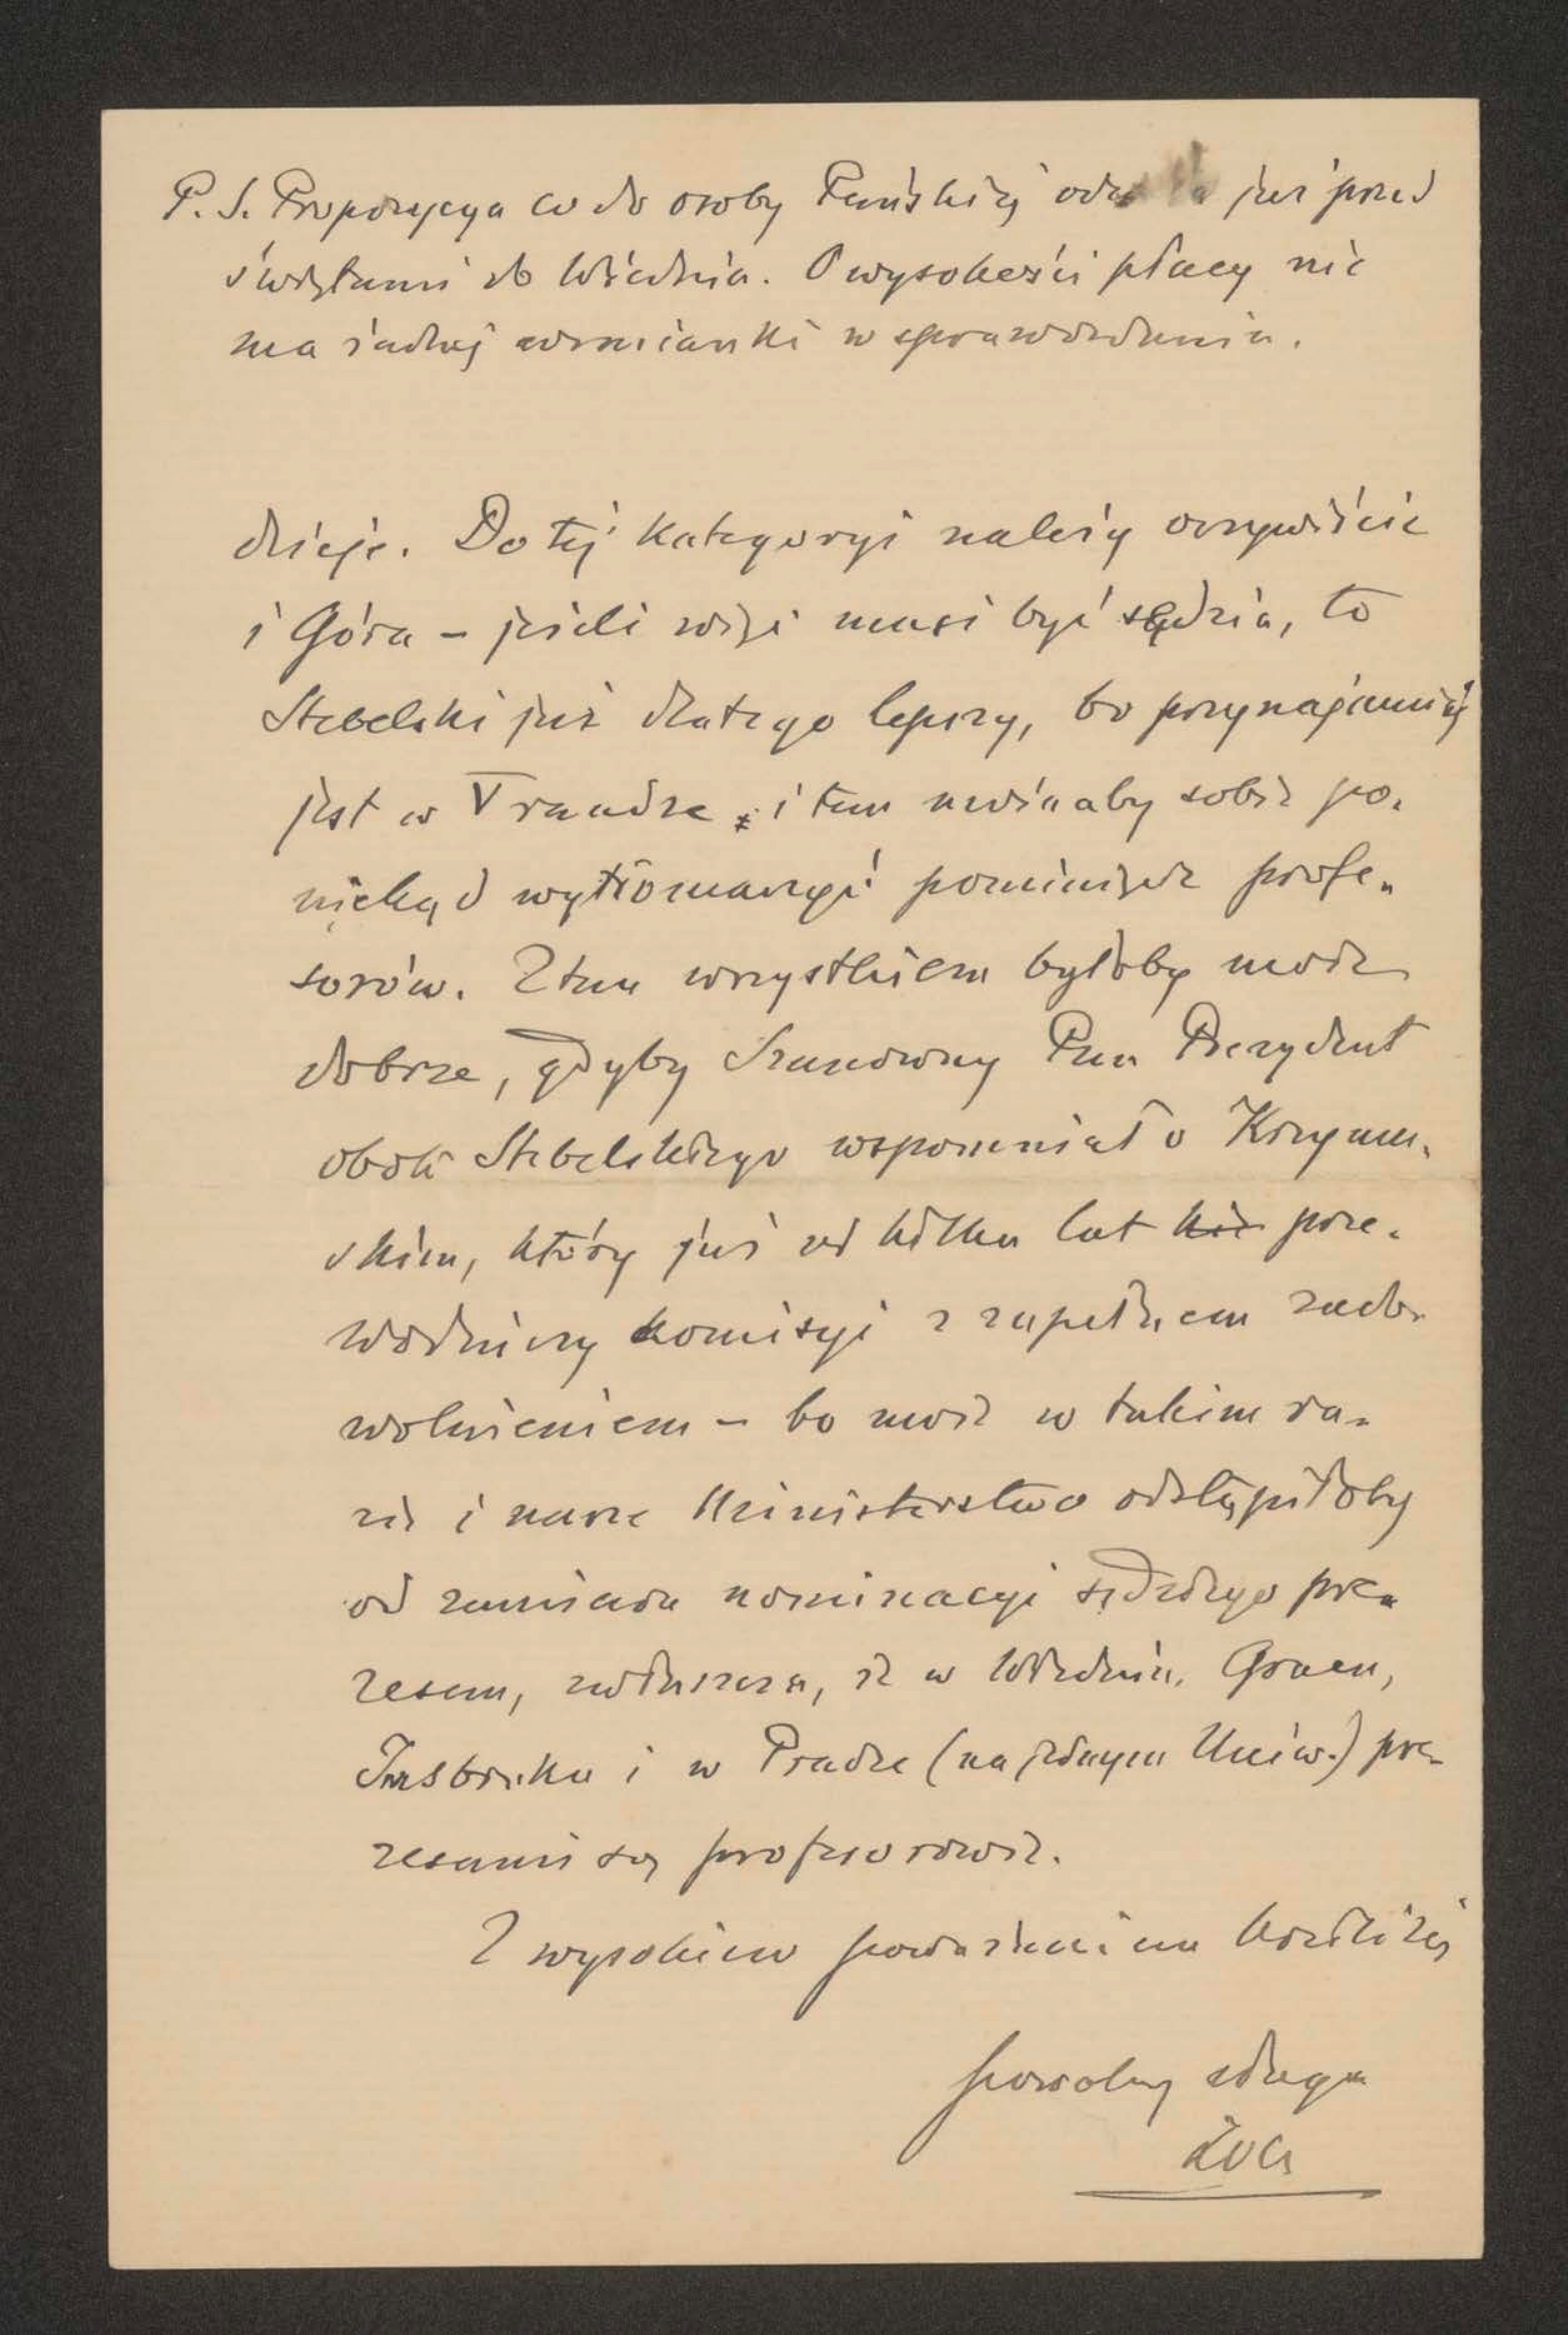 P. S. Propozycya co do osoby Pańskiej już przed
świętami do Wiednia. O wysokości płacy nie
ma żadnej wzmianki w sprawozdaniu.
dzieje. Do tej kategoryi należy oczywiście
i Góra – jeżeli więc musi być sędzia, to
Stebelski już dlatego lepszy, bo przynajmniej
jest w V randze i tem możnaby sobie po-
niekąd wytłómaczyć pominięcie profe-
sorów. Z tem wszystkiem byłoby może
dobrze, gdyby Szanowny Pan Prezydent
obok Stebelskiego wspomniał o Krzymu-
skim, który już od kilku lat prze-
wodniczy komisyi z zupełnem zado-
wolnieniem – bo może w takim ra-
zie i nasze Ministerstwo odstąpiłoby
od zamiaru nominacyi sędziego pre-
zesem, zwłaszcza, że w Wiedniu, Gracu,
Insbruku i w Pradze (na jednym Uniw.) pre-
zesami są profesorowie.
Z wysokiem poważaniem
powolny sługa
Zoll